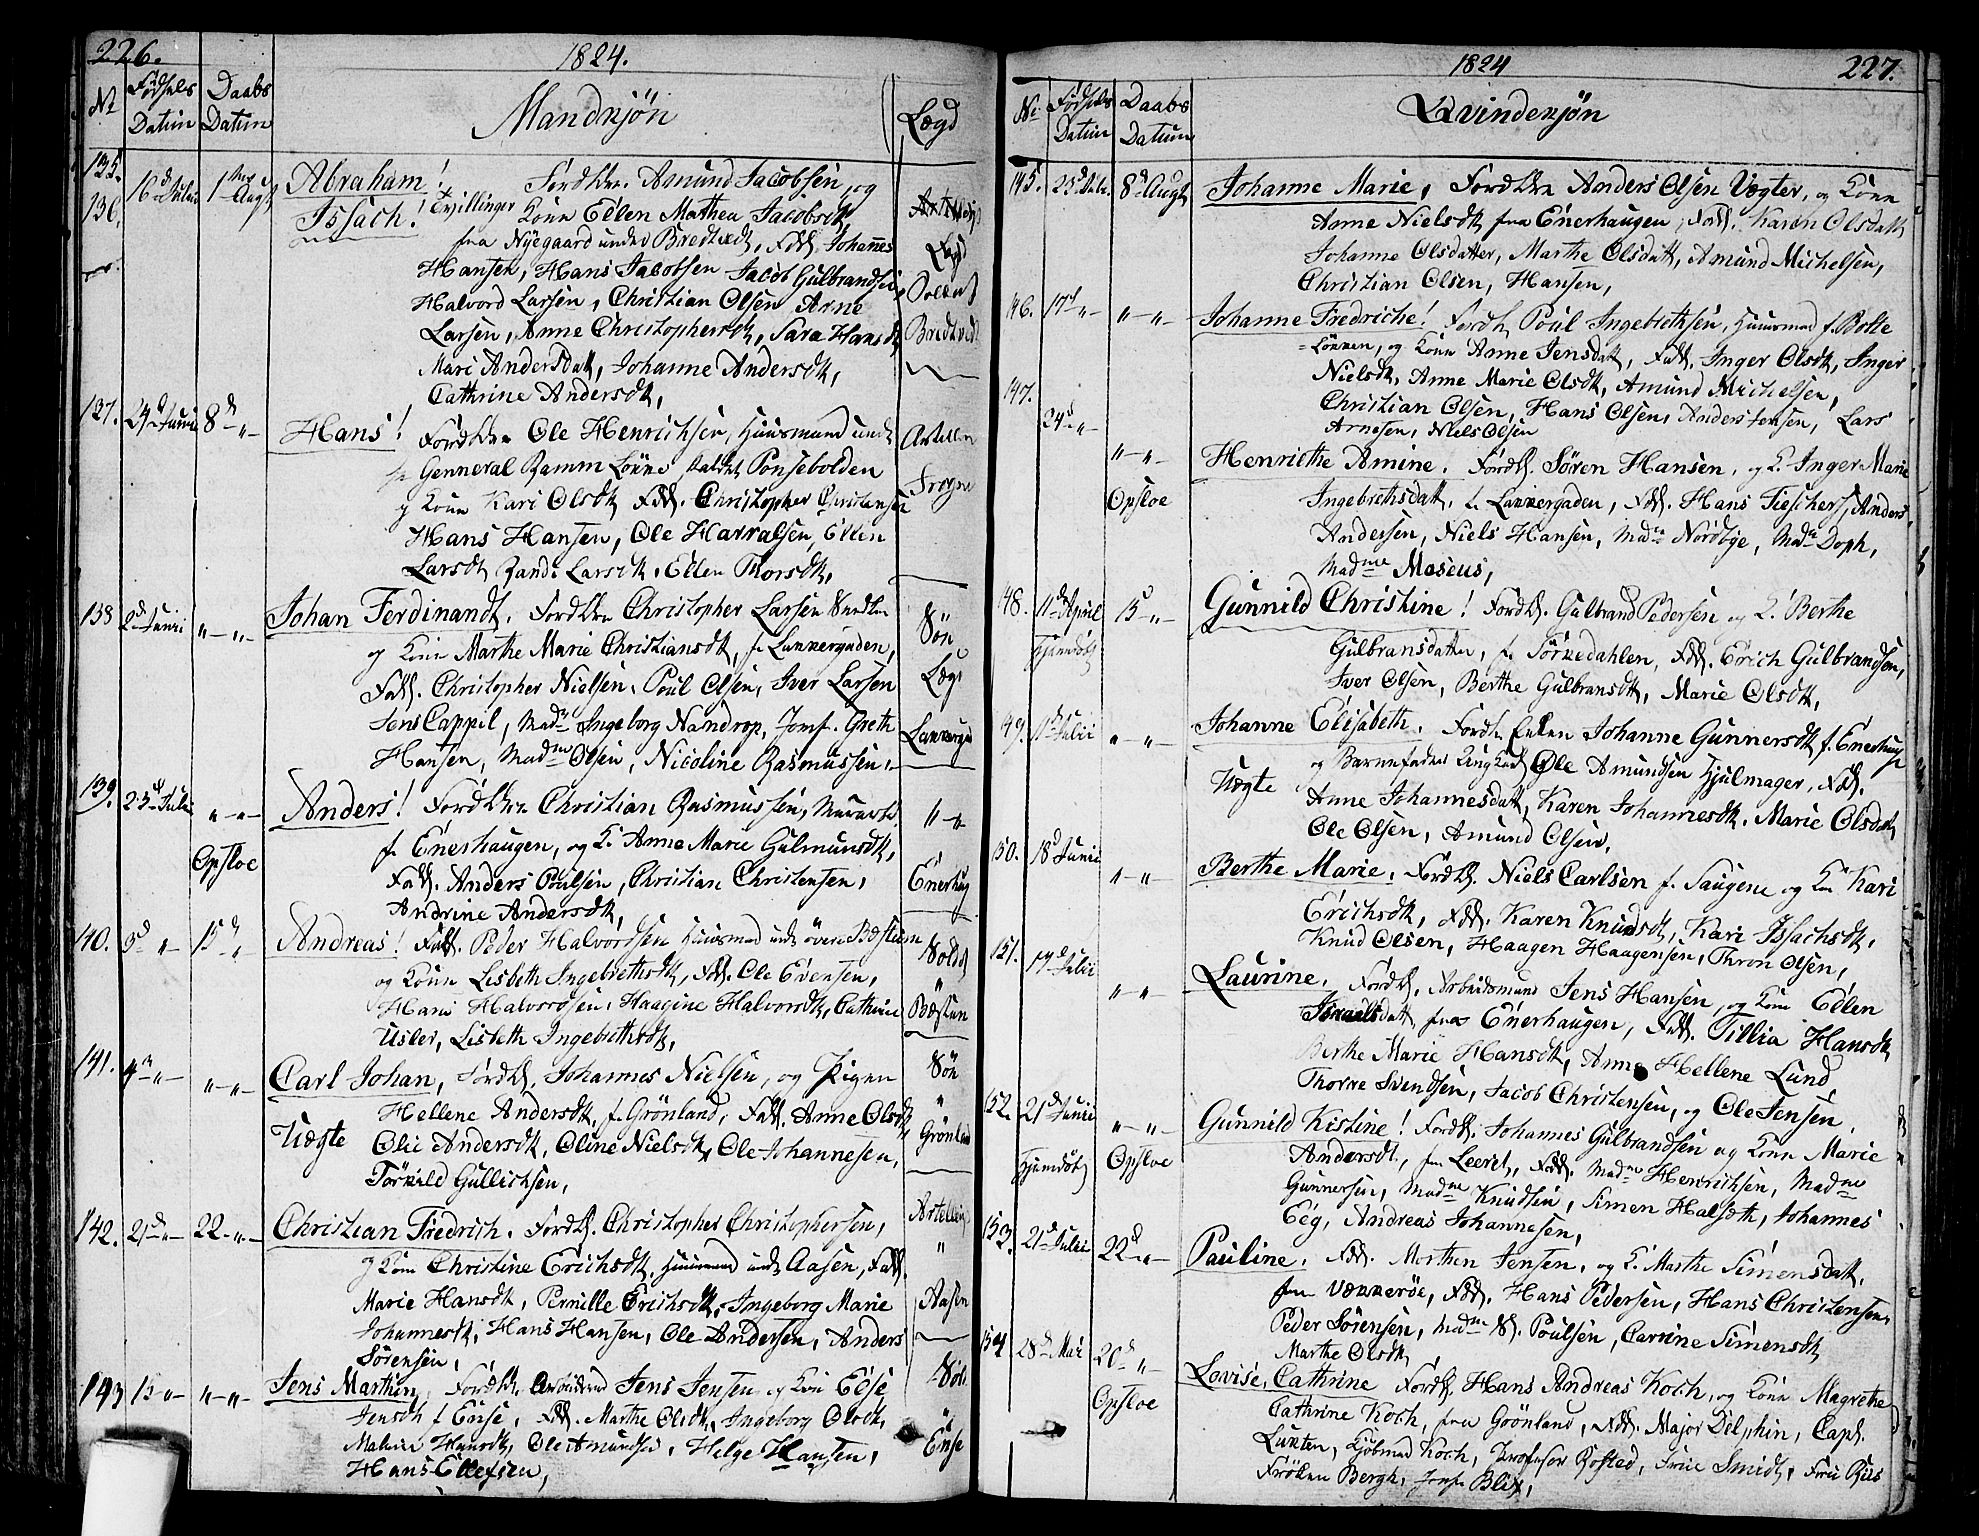 226.
1824.
No
Fødsels Datum
Daabs Datum
Mandkjön
Lægd
135.
136.
16d Julii
1ste Augt
Abraham! Forældre Amund Jacobsen, og
Issach! Tvillinger Kone Edlen Mathea Jacobsdt,
fra Nyegaard under Bredtvedt, Fadd. Johannes
Hansen, Hans Jacobsen Jacob Gulbrandsen,
Halvord Larsen, Christian Olsen Arne
Larsen, Anne Christophersdt, Sara Hansdt,
Mari Andersdatt, Johanne Andersdt,
Cathrine Andersdt,
Lægd
Bredtvedt
137. 24d Junii 8d "
Hans! Forældre Ole Henrichsen, Huusmand under
Genneral Ramm Lönne kaldet Ponsebolden
og Kone Kari Olsdt Fadd. Christopher Christensen
Hans Hansen, Ole Harralsen, Edlen
Larsdt, Rande Larsdt, Edlen Thorsdt,
138 2d Junii " "
Johan Ferdinandt. Forældre Christopher Larsen
og Kone Marthe Marie Christiansdt, fr Lakkergaden,
Fadd. Christopher Nielsen, Poul Olsen, Iver Larsen
Jens Cappil, Madm Ingeborg Nandrop, Jomf. Greth
Hansen, Madme Olsen, Nicoline Rasmussen.
Söe
Lægd
Lakkergd
139. 23d Julii " "
Opsloe
Anders! Forældre Christian Rasmussen, Murarbd.
fr Enerhaugen, og K. Anne Marie Gulmunsdt,
Fadd. Anders Poulsen, Christian Christensen,
Andrine Andersdt,
" "
Enerhug
140. 9d " 15d "
Andreas! Fadd. Peder Halvordsen Huusmd under övre Bæstum
og Kone Lisbeth Ingebrethsdt, Fadd. Ole Evensen,
Hans Halvordsen, Haagine Halvorsdt, Cathrine
Usler, Lisbeth Ingebrethsdt,
Bæstun
141. 4de " " "
Carl Johan, Forældr. Johannes Nielsen, og Pigen
Hellene Andersdt, f. Grönland, Fadd. Anne Olsdt,
Uægte Olie Andersdt, Oline Nielsdt, Ole Johannesen,
Törkild Gullichsen,
Söe
"
Grönland
142. 21d " 22 "
Christian Fredrich. Forældr. Christopher Christophersen,
og Kone Christine Erichsdt, Huusmand under Aasen, Fadd.
Marie Hansdt, Pernille Erichsdt, Ingeborg Marie
Johannesdt, Hans Hansen, Ole Andersen, Anders
Sörensen,
"
Aasen
143 15 " " "
Jens Marthin, Forældre Arbeidsmd Jens Jensen og Kone Edse
Jensdt f Ense, Fadd. Marthe Olsdt, Ingeborg Olsdt,
Malene Hansdt, Ole Amundsen, Helge Hansen,
Hans Ellefsen,
Söe
"
Ense
1824
227.
No
Fødsels Datum
Daabs Datum
Qvindekjön
145. 25d Julii 8d Augt
Johanne Marie, Forældre Anders Olsen Vægter, og Kone
Anne Nielsdt fra Enerhaugen, Fadd. Karen Olsdatt,
Johanne Olsdatter, Marthe Olsdatt, Amund Michelsen,
Christian Olsen, Hansen,
146. 17d " " "
Johanne Fredriche! Forældr Poul Ingebrethsen, Huusmd f. Bolte
Lökken, og Kone Anne Jensdatt, Fadd. Inger Olsdt, Inger
Nielsdt, Anne Marie Olsdt, Amund Michelsen,
Christian Olsen, Hans Olsen, Anders Jensen, Lars
Arnesen, Niels Olsen
147. 24d " " "
Opsloe
Henriethe Amine. Forældr. Søren Hansen, og K. Inger Marie
Ingebrethsdatt, f. Lakkergaden, Fadd. Hans Fiescher, Anders
Andersen, Niels Hansen, Madme Nordbye, Madme Doph,
Madme Moseus,
48. 11d April 15d "
Hjemdöbt
Gunnild Christine! Forældr. Gulbrand Pedersen og K. Berthe
Gulbransdatter, fr Sörkedahlen, Fadd. Erich Gulbrandsen,
Iver Olsen, Berthe Gulbransdt, Marie Olsdt,
49. 11d Julii " "
Johanne Elisabeth. Forældr Enken Johanne Gunnersdt f. Enerhug
og Barnefader Ungkarl Ole Amundsen Hjulmager, Fadd.
Uægte Anne Johannesdatt, Karen Johannesdt, Marie Olsdatt,
Ole Olsen, Amund Olsen,
150. 18d Junii " "
Berthe Marie, Forældr. Niels Carlsen f. Saugene og Kone Kari
Erichsdt, Fadd. Karen Knudsdt, Kari Issachsdt,
Knud Olsen, Haagen Haagensen, Thron Olsen,
151. 17d Julii " "
Laurine, Forældr. Arbeidsmand Jens Hansen, og Kone Edlen
Israelsdatt, fra Enerhaugen, Fadd. Tillia Hansdt,
Berthe Marie Hansdt, Anne Hellene Lund
Thorre Svendsen, Jacob Christensen, og Ole Jensen,
152. 21d Junii " "
Hjemdöbt Opsloe
Gunnild Kistine! Forældr. Johannes Gulbrandsen og Kone Marie
Andersdt, fra Leeret, Fadd. Madme Henrichsen, Madme
Gunnersen, Madme Knudsen, Simen Halsæth, Johannes
Eeg, Andreas Johannesen,
153. 21d Julii 22d "
Pauline, Fadd. Morthen Jensen, og K. Marthe Simensdatt,
fra Vækkerøe, Fadd. Hans Pedersen, Hans Christensen,
Peder Sørensen, Madme S. Poulsen, Carrine Simensdt,
Marthe Olsdt,
154 28d Mai 20d "
Opsloe
Lovise, Cathrine Forældr. Hans Andreas Koch, og Kone Magrethe
Cathrine Koch, fra Grönland, Fadd. Major Delphin, Capt.
Lukten, Kjöbmd Koch, Professor Rosted, Frue Smidt, Frue Riis
Fröken Bergh, Jomfr Blix,